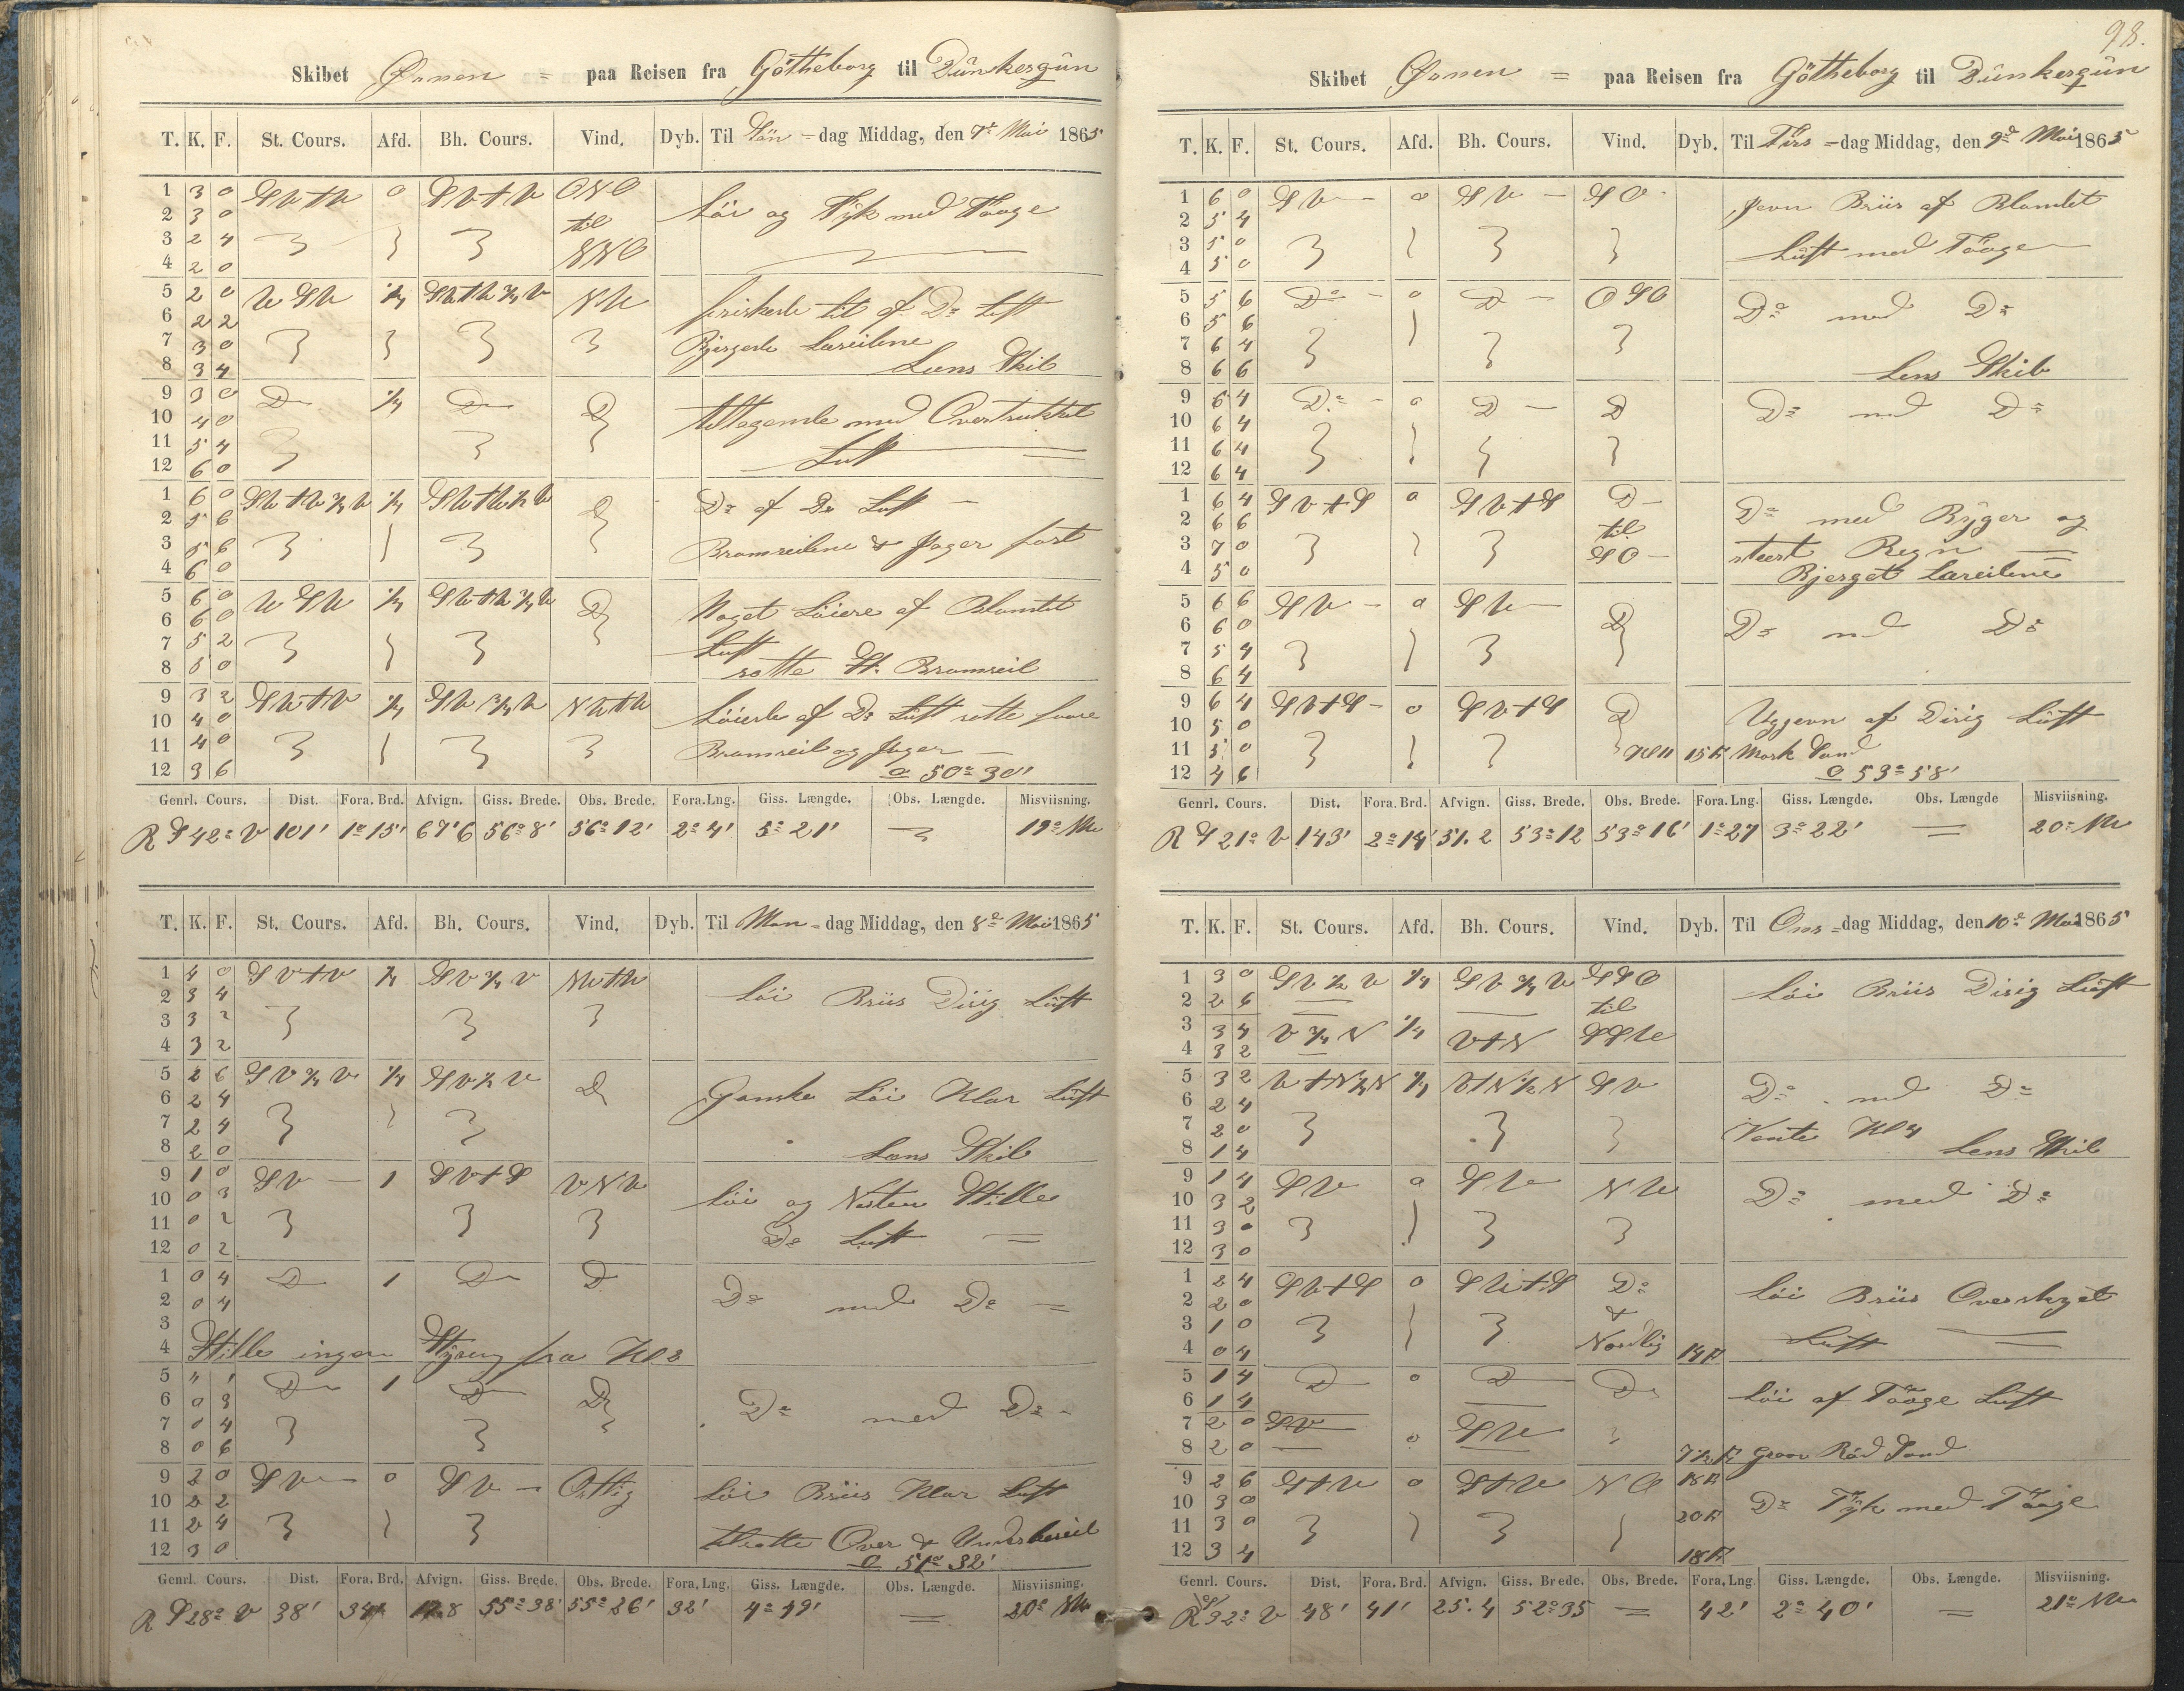 Skibet Ørnen = paa Reisen fra Götheborg til Dünkerqün
T. K. F. St. Cours. Afd. Bh. Cours. Vind. Dyb. Til Sön-dag Middag, den 7de Mai 1865
1 3 0 SVtV 0 SVtV ONO
2 3 0 til Löi og Tÿk med Tååge
3 2 4
4 2 0 NNO
5 2 0 V SV ¼ SVtV¾V NV friskede til af Do Luft
6 2 2
7 3 0 Bjergede Læseilene
8 3 4 Læns Skib
9 3 0 Do ¼ Do Do
10 4 0 tiltagende med Overtrukket
11 5 4
12 6 0 Luft
1 6 0 SVtV½V ¼ SVtV½V Do Do af Do Luft
2 5 6
3 5 6 Bramseilene & Jager fast
4 6 0
5 6 0 V SV ¼ SVtV¾V Do Noget Löiere af Blandet
6 6 0
7 5 2 Luft
8 5 0 satte St. Bramseil
9 3 2 SVtV ¼ SV¾V NVtV
10 4 0 Löiede af Do Luft satte
11 4 0 Bramseil og Jager
12 3 6 50° 30'
Genrl. Cours. Dist. Fora. Brd. Afvign. Giss. Brede. Obs. Brede. Fora. Lng. Giss. Længde. Obs. Længde. Misviisning.
R S 42° V 101' 1° 15' 67'6 56° 8' 56° 12' 2° 4' 5° 21' 19° NV
T. K. F. St. Cours. Afd. Bh. Cours. Vind. Dyb. Til Man-dag Middag, den 8de Mai 1865
1 4 0 SVtV ¼ SV½V NVtV
2 3 4 Löi Briis Diiig Luft
3 3 2
4 3 2
5 2 6 SV¾V ¼ SV½V Do
6 2 4 Ganske Löi Klar Luft
7 2 4
8 2 0 Læns Skib
9 1 0 SV 1 SVtS VNV
10 0 3 Löi og Nesten Stille
11 0 2 Do Luft
12 0 2
1 0 4 Do 1 Do Do
2 0 4 Do med Do
3
4 Stille ingen Stÿring fra Kl 2
5 " 1 Do 1 Do Do
6 0 3 Do med Do
7 0 4
8 0 6
9 2 0 SV 0 SV Ostlig Löi Briis Klar Luft
10 2 2
11 2 4 tilsatte Over & Underlæseil
12 3 0 51° 32'
Genrl. Cours. Dist. Fora. Brd. Afvign. Giss. Brede. Obs. Brede. Fora. Lng. Giss. Længde. Obs. Længde. Misviisning.
R S 28° V 38' 34' 17.8 55° 38' 55° 26' 32' 4° 49' 20° NV
98.
Skibet Ørnen = paa Reisen fra Götheborg til Dünkerqün
T. K. F. St. Cours. Afd. Bh. Cours. Vind. Dyb. Til Tirs-dag Middag, den 9de Mai 1865
1 6 0 SV 0 SV SO Jevn Briis af Blandet
2 5 4
3 5 0 Luft med Tååge
4 5 0
5 5 6 Do 0 Do OSO Do med Do
6 5 6
7 6 4
8 6 6 Lens Skib
9 6 4 Do 0 Do Do Do med Do
10 6 4
11 6 4
12 6 4
1 6 4 SVtS 0 SVtS Do
2 6 6 til Do med Bÿger og
3 7 0 SO stært Regn
4 5 0 Bjerget Læseilene
5 6 6 SV 0 SV Do
6 6 0 Do med Do
7 5 4
8 6 4
9 6 4 SVtS 0 SVtS Do
10 5 0 Uggevn af Disig Luft
11 5 0 Kl 11 15 F. Mørk Sand
12 4 6 53° 58'
Genrl. Cours. Dist. Fora. Brd. Afvign. Giss. Brede. Obs. Brede. Fora. Lng. Giss. Længde. Obs. Længde Misviisning.
R S 21° V 143' 2° 14' 51.2 53° 12 53° 16' 1° 27 3° 22' 20° NV
T. K. F. St. Cours. Afd. Bh. Cours. Vind. Dyb. Til Ons-dag Middag, den 10de Mai 1865
1 3 0 SV½V ¼ SV¾V SSO Löi Briis Disig Luft
2 2 6 til
3 3 4 V¾N ¼ VtN SSV
4 3 2
5 3 2 VtN½N ¼ VtN½N SV
6 2 4 Do med Do
7 2 0 Vente Kl 4
8 1 4 Lens Skib
9 1 4 SV 0 SV NV Do med Do
10 3 2
11 3 0
12 3 0
1 2 4 SVtS 0 SVtS Do Löi Briis Overskyet
2 2 0 &
3 1 0 Nordlig Luft
4 0 4 14 F.
5 1 4 Do 0 Do Do Löi af Tååge Luft
6 1 4
7 2 0 SV 0 SV
8 2 0 7½ F. Graav Röd Sand
9 2 6 StV 0 StV NO 18 F.
10 3 0 20 F. Do Tÿk med Tååge
11 3 0
12 3 4 18 F.
Genrl. Cours. Dist. Fora. Brd. Afvign. Giss. Brede. Obs. Brede. Fora. Lng Giss. Længde. Obs. Længde. Misviisning.
R S 32° V 48' 41' 25.4 52° 35 42' 2° 40' 21° NV